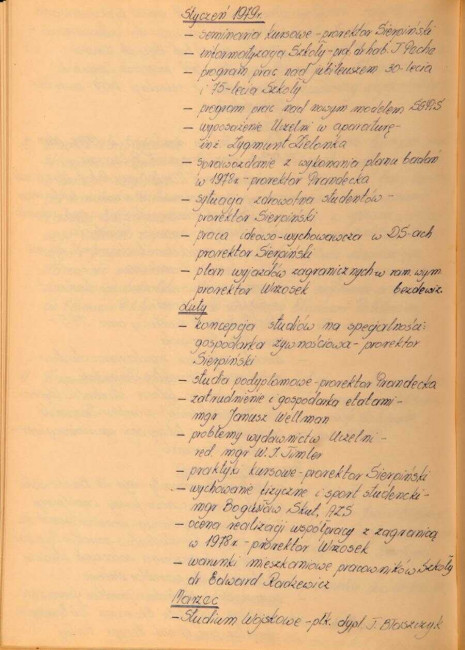 Styczeń 1979r.
- seminaria kursowe - prorektor Sierpiński
- informatyzacja Szkoły - prof. dr hab. T. Pocha
- program prac nad jubileuszem 30-lecia
i 75-lecia Szkoły
- program prac nad nowym modelem SGPiS
- wyposażenie Uczelni w aparaturę -
inż. Zygmunt Zielonka
- sprawozdanie z wykonania planu badań
w 1978r. - prorektor Prandecka
- sytuacja zdrowotna studentów -
prorektor Sierpiński
- praca ideowo-wychowawcza w DS-ach
prorektor Sierpiński
- plan wyjazdów zagranicznych w ram. wym.
prorektor Wrzosek bezdewiz.
Luty
- koncepcja studiów na specjalności:
gospodarka żywnościowa - prorektor
Sierpiński
- studia podyplomowe - prorektor Prandecka
- zatrudnienie i gospodarka etatami -
mgr Janusz Wellman
- problemy wydawnictw Uczelni -
red. mgr W. J. Timler
- praktyki kursowe - prorektor Sierpiński
- wychowanie fizyczne i sport studencki -
mgr Bogusław AZS
- ocena realizacji współpracy z zagranicą
w 1978r. - prorektor Wrzosek
- warunki mieszkaniowe pracowników Szkoły
dr Edward
Marzec
- Studium Wojskowe - płk. dypl. J. Błaszczyk